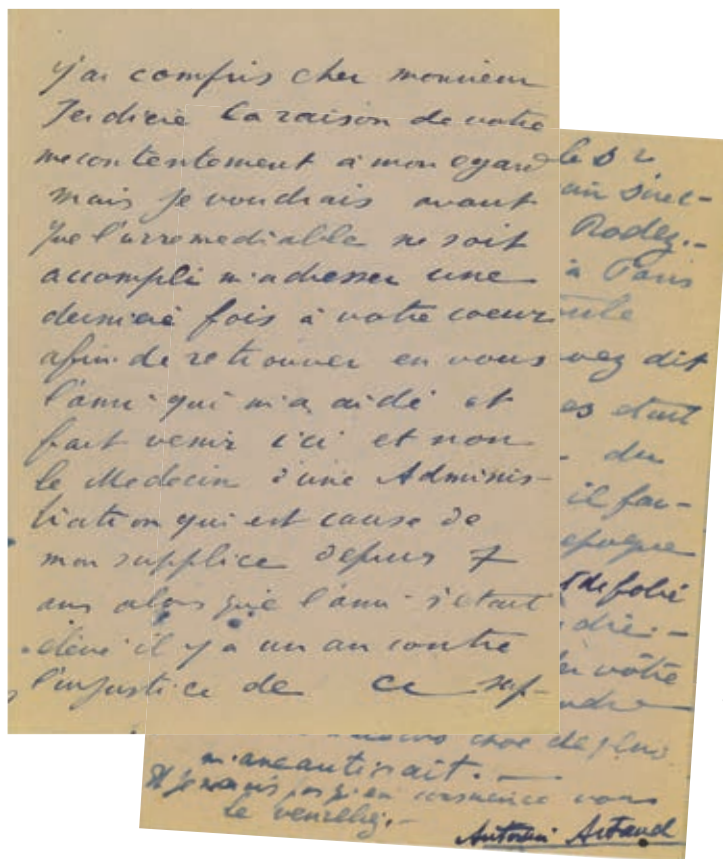 j'ai compris cher monsieur
Ferdière la raison de votre
mecontentement à mon egard
mais je voudrais avant
que l'irremediable ne soit
accompli m'adresser une
derniere fois à votre coeur
afin de retrouver en vous
l'ami qui m'a aidé et
fait venir ici et non
le Medecin d'une Adminis-
tration qui est cause de
mon supplice depuis 7
ans alors que l'ami s'etait
élevé il y a un an contre
l'injustice de ce sup-
le Dr
Rodez.-
à Paris
vez dit
etait
- du
il fau-
epoque
de folie
votre
choc de plus
m'aneantirait. —
Et je ne puis pas en conscience vous
le
Antonin Artaud